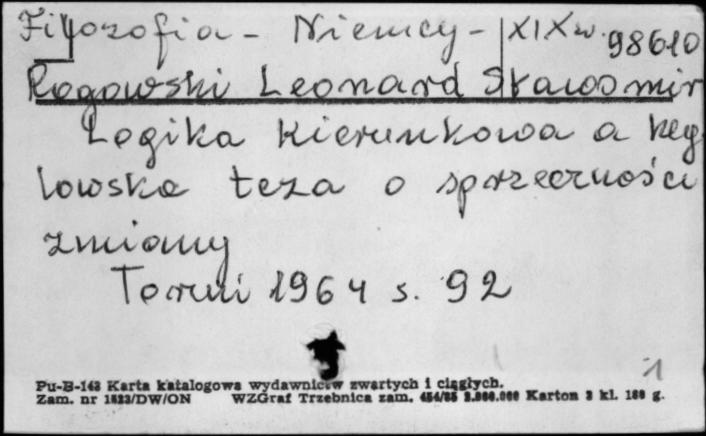 Filozofia - Niemcy - XIX w. 98610
Rogowski Leonard Sławomir
Logika kierunkowa a heg
lowska teza o sprzeczności
zmiany
Toruń 1964 s. 92
1
Pu-B-143 Karta katalogowa wydawnictw zwartych i ciągłych.
Zam. nr 1823/DW/ON WZGraf Trzebnica zam. 454/85 2.000.000 Karton 3 kl. 180 g.